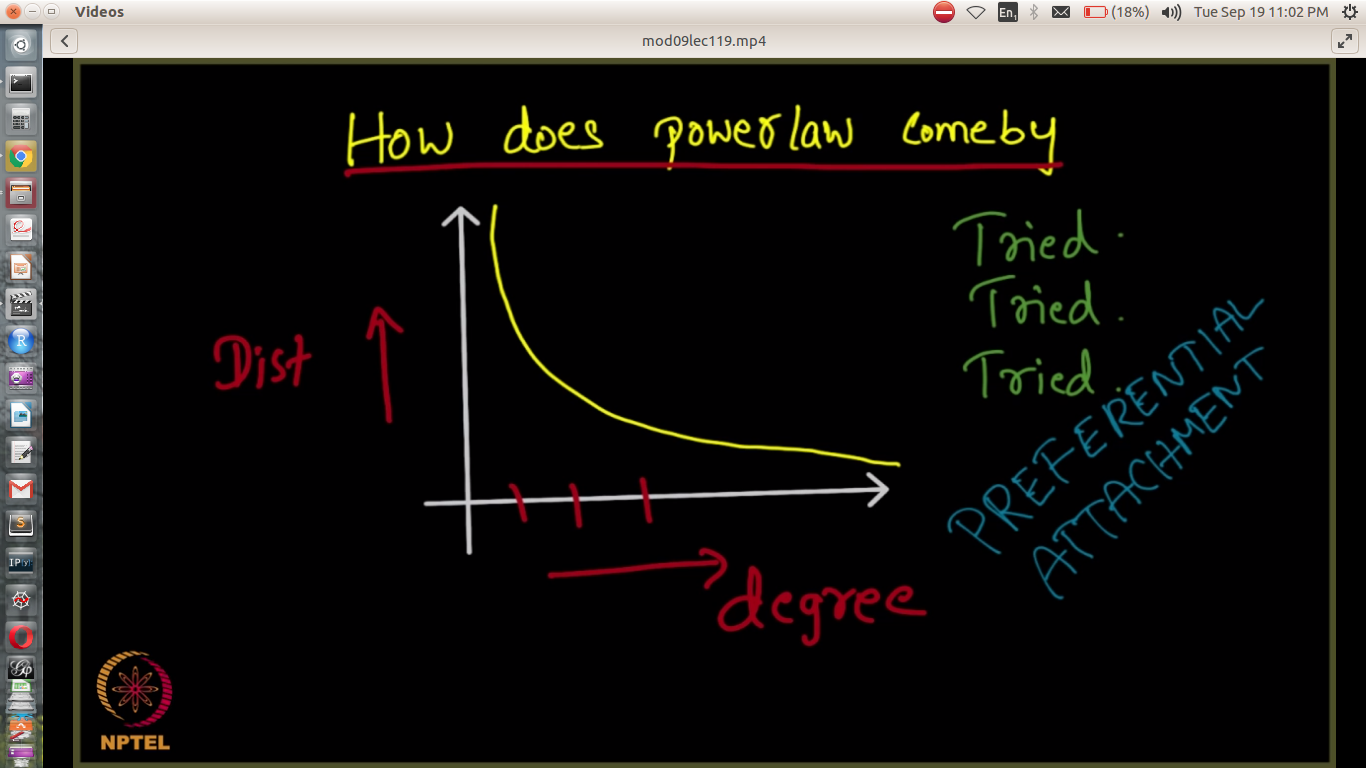 Videos
En1
(18%)
Tue Sep 19 11:02 PM
mod09lec119.mp4
How does powerlaw comeby
Tried.
Tried.
Tried.
PREFERENTIAL
ATTACHMENT
Dist
degree
NPTEL